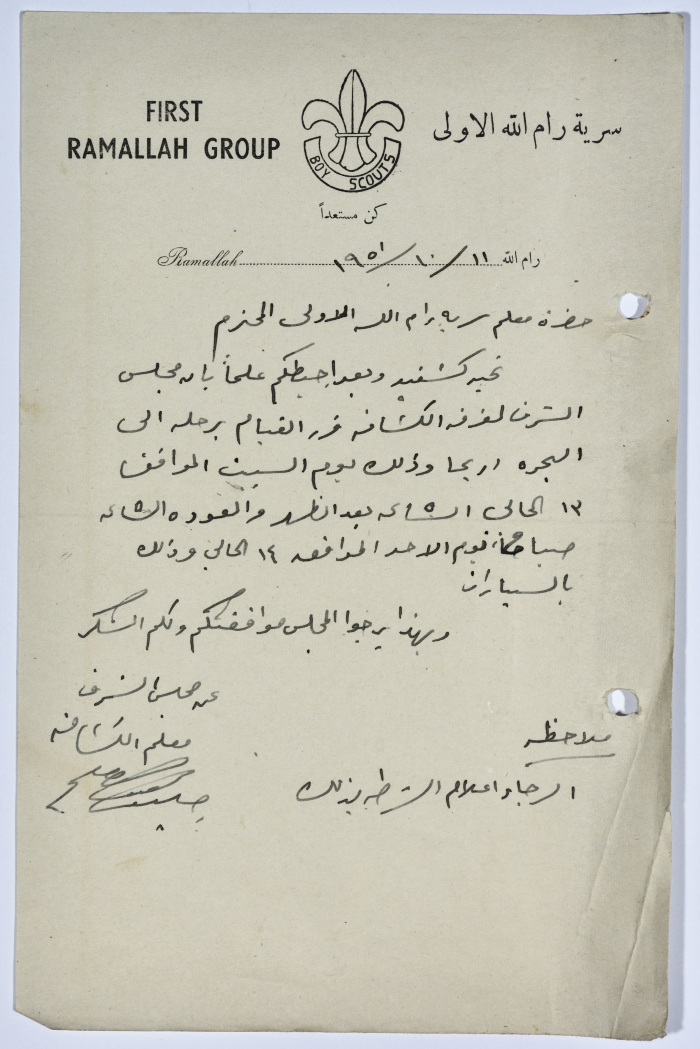 FIRST
RAMALLAH GROUP
سرية رام الله الاولى
BOY SCOUTS
كن مستعداً
Ramallah رام الله ١١/١٠/١٩٥١
حضرة معلم سرية رام الله الاولى المحترم
تحيه كشفيه وبعد احيطكم علماً بان مجلس
الشرف لفرقه الكشافه قرر القيام برحله الى
البحره اريحا وذلك يوم السبت الموافق
١٣ الحالي الساعه بعد الظهر والعوده الساعه
صباحاً يوم الاحد الموافق ١٤ الحالي وذلك
بالسيارات
وبهذا يرجوا المجلس موافقتكم ولكم الشكر
عن مجلس الشرف
معلم الكشافه
ملاحظه
الرجاء اعلام الشرطه بذلك